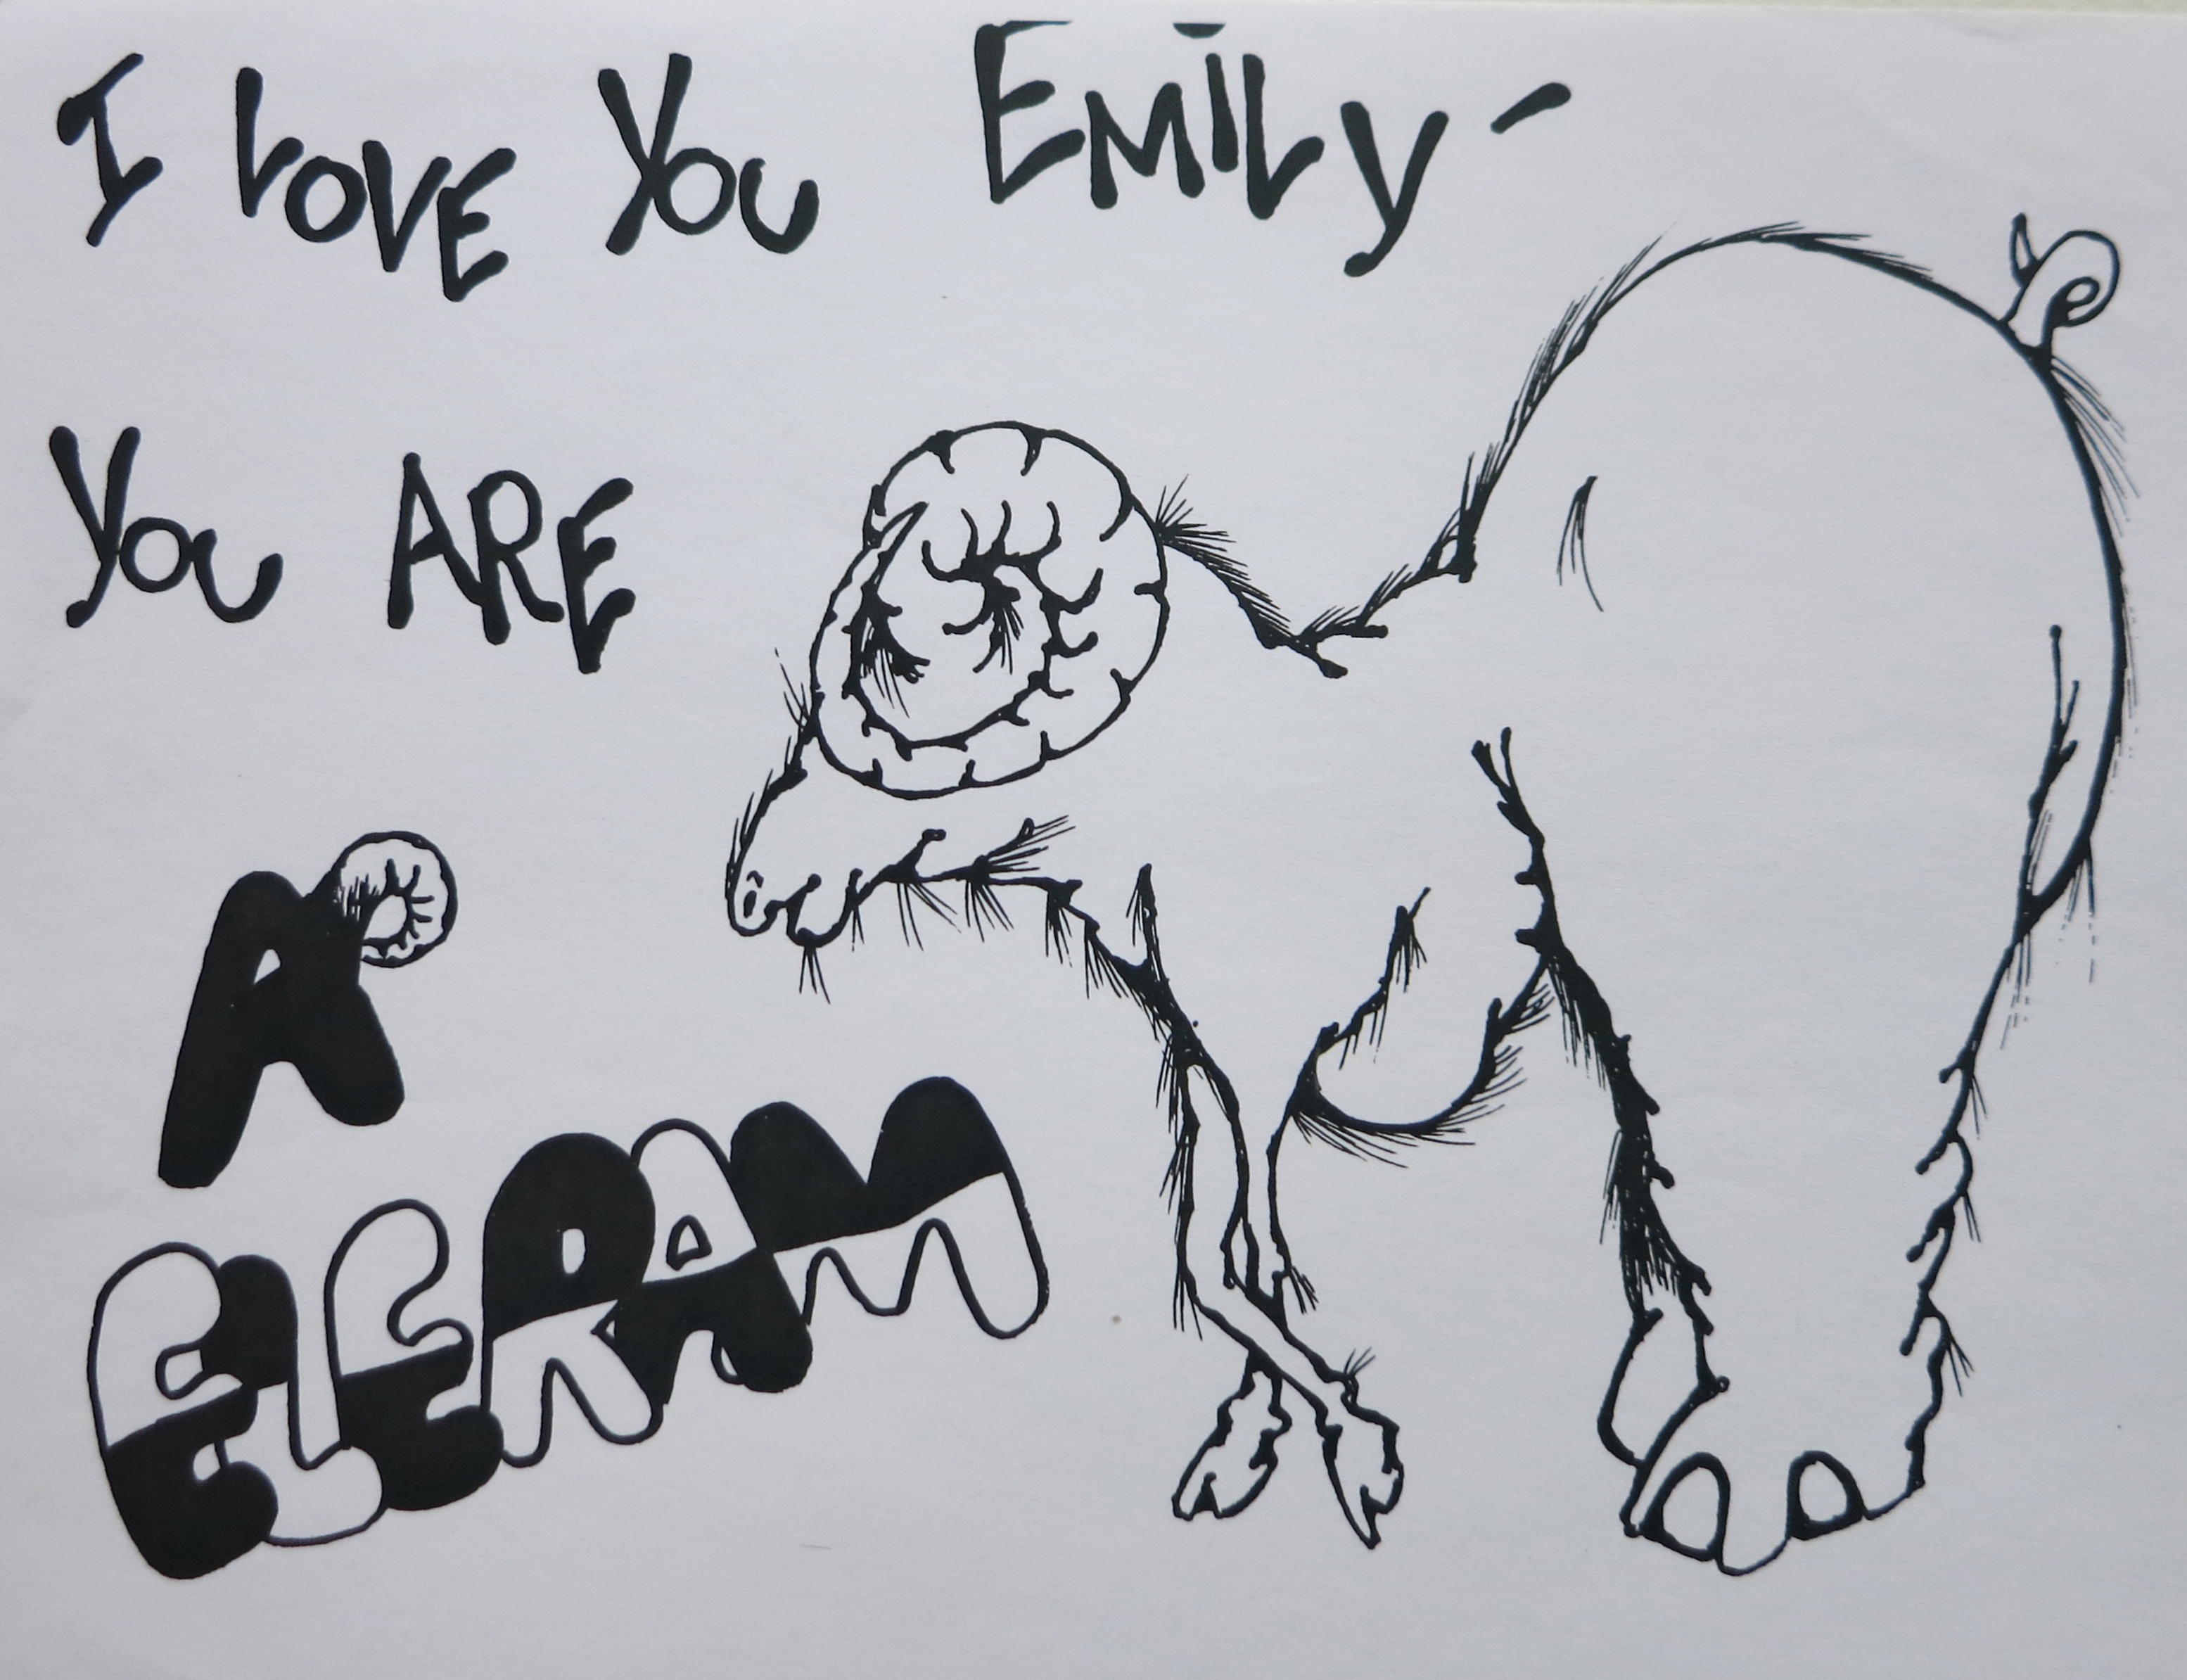 I LOVE YOU EMILY -
YOU ARE
A
ELERAM